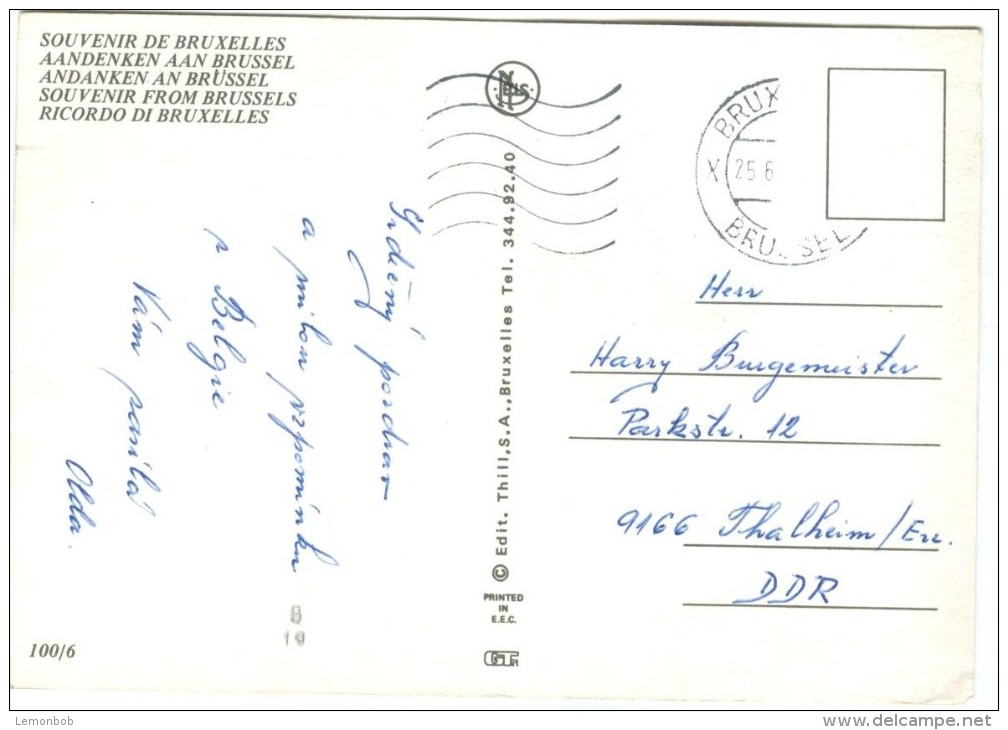 SOUVENIR DE BRUXELLES
AANDENKEN AAN BRUSSEL
ANDANKEN AN BRÜSSEL
SOUVENIR FROM BRUSSELS
RICORDO DI BRUXELLES
Srdečný pozdrav
a milou vzpomínku
z Belgie
Vám posílá
Olda.
100/6
© Edit. Thill, S.A., Bruxelles Tel. 344.92.40
PRINTED
IN
E.E.C.
BRUX
X 25 6
BRU SSEL
Herr
Harry Burgemeister
Parkstr. 12
9166 Thalheim/Erz.
DDR
Lemonbob
www.delcampe.net